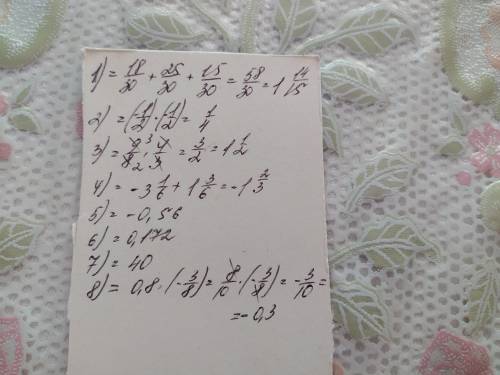 1) = 18/30 + 25/30 + 15/30 = 58/30 = 1 14/15
2) = (-1/2) · (-1/2) = 1/4
3) = 9³/8₂ · 4/3 = 3/2 = 1 1/2
4) = -3 1/6 + 1 3/6 = -1 2/3
5) = -0,56
6) = 0,172
7) = 40
8) = 0,8 · (-3/8) = 8/10 · (-3/8) = -3/10 =
= -0,3